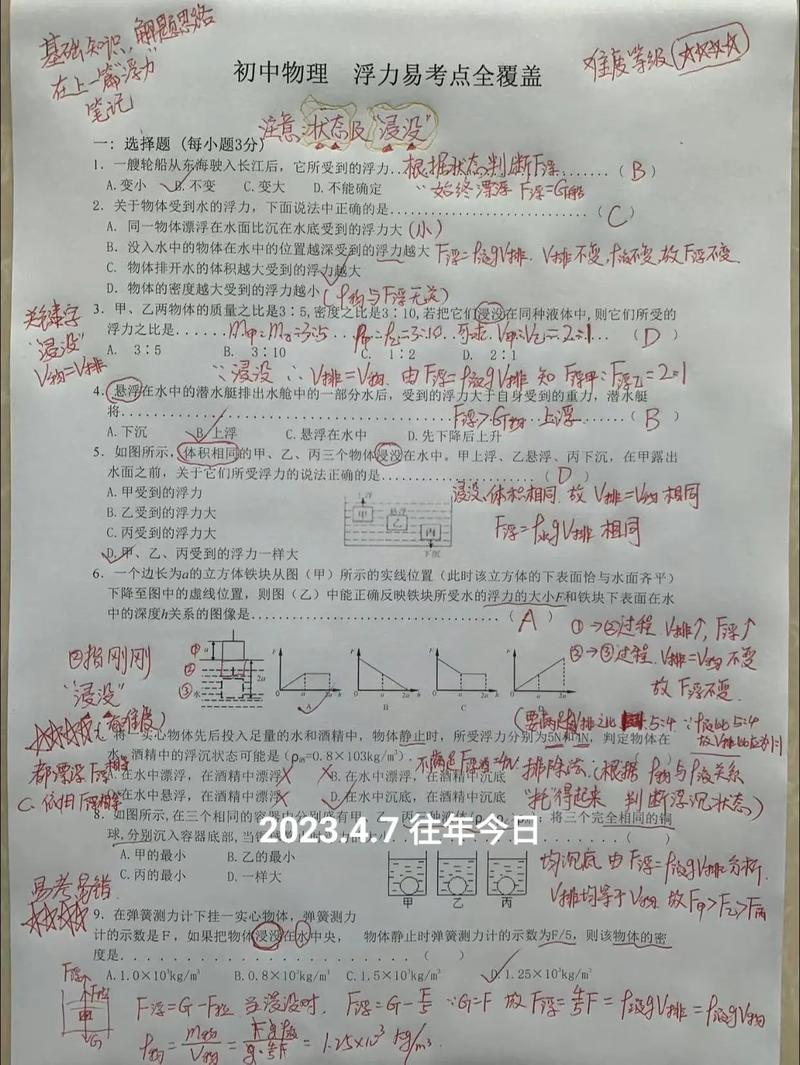 基础知识,解题思路
在上一篇"浮力
笔记
难度等级 ☆☆☆☆
初中物理 浮力易考点全覆盖
注意:"状态及"浸没"
一:选择题(每小题3分)
1. 一艘轮船从东海驶入长江后，它所受到的浮力...根据状态判断F浮........(B)
A.变小 B.不变 C.变大 D.不能确定 ∵始终漂浮 F浮=G船
2. 关于物体受到水的浮力，下面说法中正确的是............................(C)
A. 同一物体漂浮在水面比沉在水底受到的浮力大(小)
B. 没入水中的物体在水中的位置越深受到的浮力越大 F浮=ρ液gV排. V排不变,ρ液不变,故F浮不变.
C. 物体排开水的体积越大受到的浮力越大
D. 物体的密度越大受到的浮力越小(ρ物与F浮无关)
关键字
"浸没"
V物=V排
3. 甲、乙两物体的质量之比是3∶5,密度之比是3∶10,若把它们浸没在同种液体中,则它们所受的
浮力之比是......m甲:m乙=3:5... ρ甲:ρ乙=3:10. 可求.V甲:V乙=2:1...(D)
A. 3∶5 B. 3∶10 C. 1∶2 D. 2∶1
∵浸没 ∴V排=V物. 由F浮=ρ液gV排 知 F浮甲:F浮乙=2:1
4. 悬浮在水中的潜水艇排出水舱中的一部分水后，受到的浮力大于自身受到的重力，潜水艇
将..............................F浮>G物 上浮......(B)
A.下沉 B.上浮 C.悬浮在水中 D.先下降后上升
5. 如图所示，体积相同的甲、乙、丙三个物体浸没在水中。甲上浮、乙悬浮、丙下沉，在甲露出
水面之前，关于它们所受浮力的说法正确的是......................(D)
A.甲受到的浮力
B.乙受到的浮力大
C.丙受到的浮力大
D.甲、乙、丙受到的浮力一样大
浮
甲
悬浮
乙
丙
下沉
浸没、体积相同. 故 V排=V物 相同
F浮=ρ液gV排 相同
6. 一个边长为a的立方体铁块从图（甲）所示的实线位置（此时该立方体的下表面恰与水面齐平）
下降至图中的虚线位置，则图（乙）中能正确反映铁块所受水的浮力的大小F和铁块下表面在水
中的深度h关系的图像是......................................(A)
①→②过程. V排↑, F浮↑
②→③过程. V排=V物 不变
故 F浮不变.
②指刚刚
"浸没"
① ② ③ 水 a 2a
A B C
将一实心物体先后投入足量的水和酒精中，物体静止时，所受浮力分别为5N和4N，判定物体在
水、酒精中的浮沉状态可能是（ρ酒=0.8×103kg/m³）
在水中漂浮，在酒精中漂浮 B.在水中漂浮，在酒精中沉底
在水中悬浮，在酒精中漂浮 D.在水中沉底，在酒精中沉底
排除法:(根据 ρ物与ρ液关系
"托"得起来 判断浮沉状态)
8. 如图所示，在三个相同的容器中分别盛有甲
将三个完全相同的铜
球,分别沉入容器底部,当
A.甲的最小 B.乙的最小
C.丙的最小 D.一样大
甲 乙 丙
均沉底 由F浮=ρ液gV排分析.
V排均等于V物 故F甲>F乙>F丙
2023.4.7 往年今日
易考易错
☆☆☆☆
9. 在弹簧测力计下挂一实心物体，弹簧测力
计的示数是F，如果把物体浸没在水中央， 物体静止时弹簧测力计的示数为F/5，则该物体的密
度是....................................( )
A.1.0×10³kg/m³ B.0.8×10³kg/m³ C.1.5×10³kg/m³ D.1.25×10³kg/m³
F浮 F拉
甲
G
F浮=G-F拉 当浸没时. F浮=G-F/5 ∵G=F 故F浮=4/5F=ρ液gV排=ρ液gV物
ρ物=m物/V物= =1.25×10³ kg/m³.